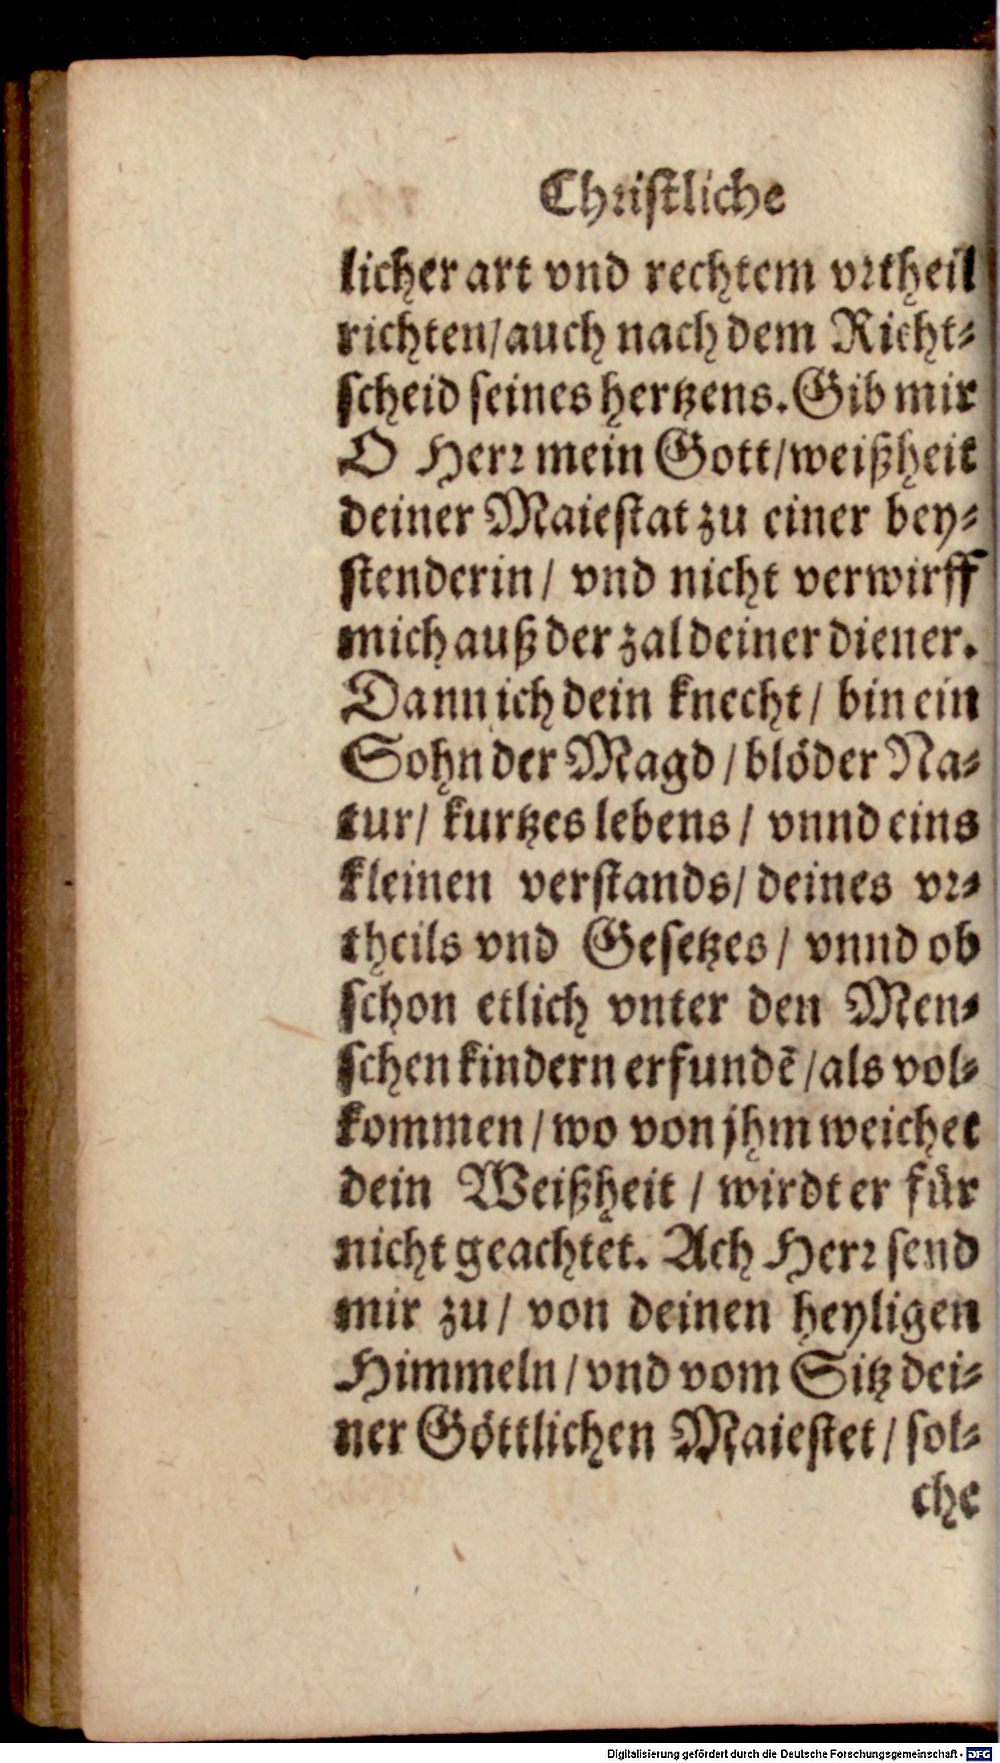 Christliche
licher art vnd rechtem vrtheil
richten/auch nach dem Richt⸗
scheid seines hertzens. Gib mir
O Herr mein Gott/weißheit
deiner Maiestat zu einer bey⸗
stenderin/ vnd nicht verwirff
mich auß der zal deiner diener.
Dann ich dein knecht/ bin ein
Sohn der Magd/blöder Na⸗
tur/ kurtzes lebens/ vnnd eins
kleinen verstands/ deines vr⸗
theils vnd Gesetzes/ vnnd ob
schon etlich vnter den Men⸗
schen kindern erfundē/als vol⸗
kommen/wo von jhm weichet
dein Weißheit/ wirdt er für
nicht geachtet. Ach Herr send
mir zu/ von deinen heyligen
Himmeln/vnd vom Sitz dei⸗
ner Göttlichen Maiestet/ sol⸗
che
Digitalisierung gefördert durch die Deutsche Forschungsgemeinschaft - DFG